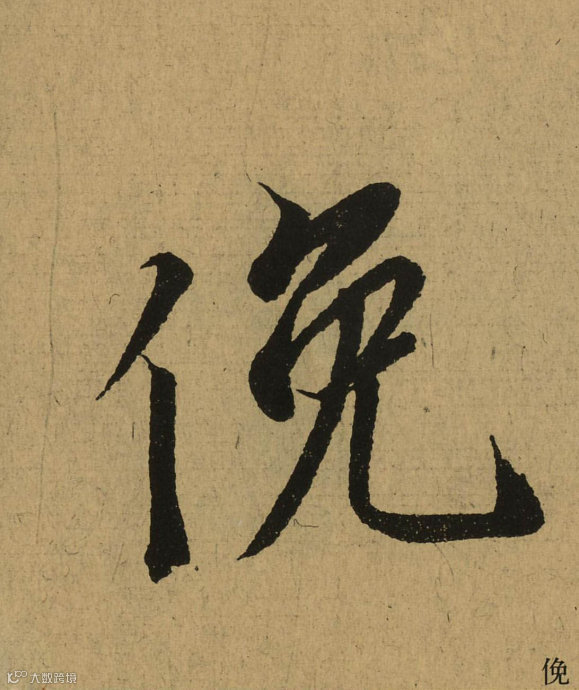 俛
俛
大数跨境